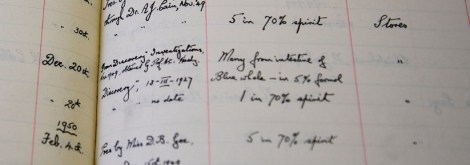 through Dr. A.J. Cain, Nov. 49
5 in 70% spirit
Stores
" 30th.
"
Dec. 20th
from Discovery Investigations,
Many from intestine of
Discovery, 13-III-1927
Blue whale - in 5% formol
" 20th
" no date
1 in 70% spirit
"
1950
Feb. 4th
Pres by Miss D.B. Gee,
5 in 70% spirit
"